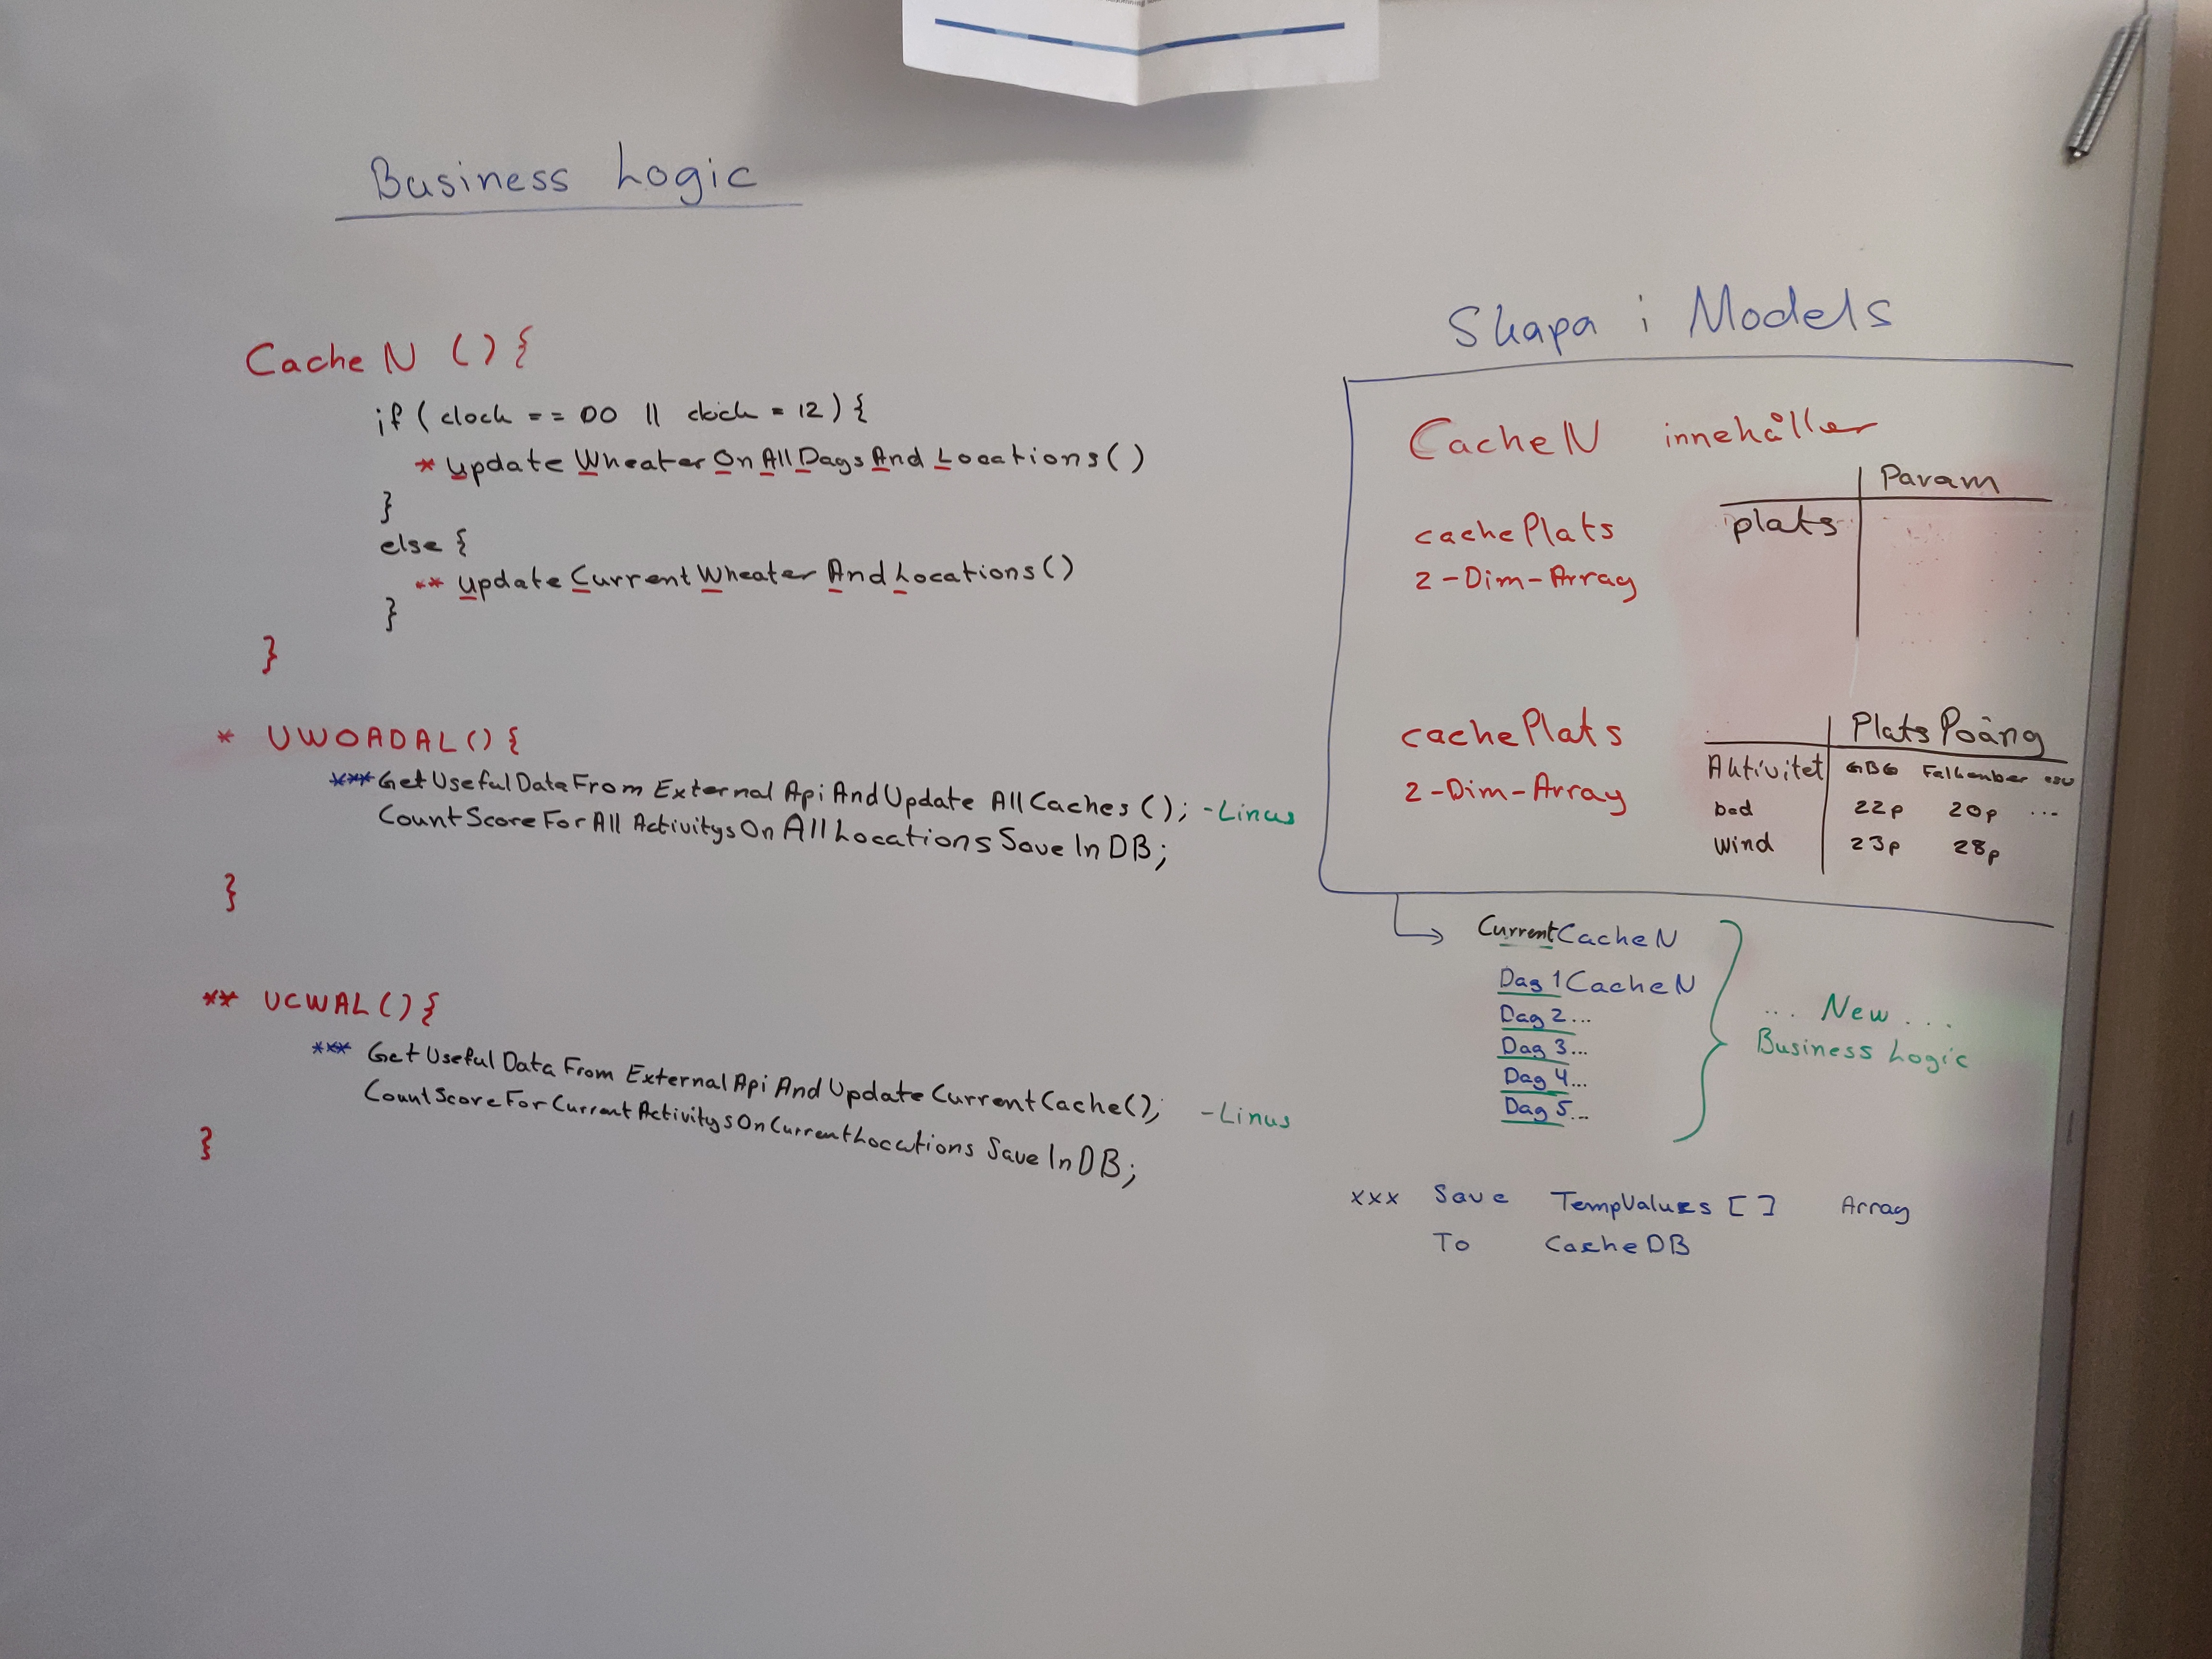 Business Logic
CacheN () {
if ( clock == 00 || clock = 12 ) {
* Update Wheater On All Dags And Locations ()
}
else {
** Update Current Wheater And Locations ()
}
}
* UWOADAL () {
*** Get Useful Data From External Api And Update All Caches (); - Linus
Count Score For All Activitys On All Locations Save In DB;
}
** UCWAL () {
*** Get Useful Data From External Api And Update Current Cache (); - Linus
Count Score For Current Activitys On Current Locations Save In DB;
}
Skapa i Models
CacheN innehåller
Param
plats
cachePlats
2-Dim-Array
cachePlats
2-Dim-Array
Plats Poäng
Aktivitet GBG Falkenber osv
bad 22p 20p ...
wind 23p 28p
CurrentCacheN
Dag 1 CacheN
Dag 2 ...
Dag 3 ...
Dag 4 ...
Dag 5 ...
... New ...
Business Logic
xxx Save TempValues [ ] Array
To CacheDB